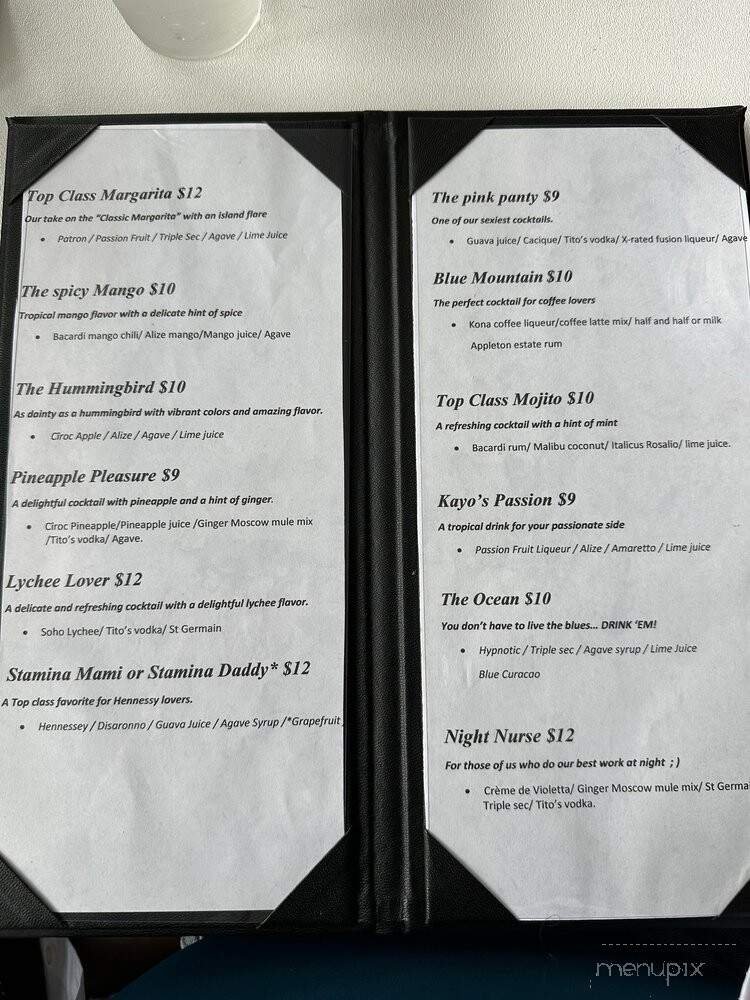 Top Class Margarita $12
Our take on the "Classic Margarita" with an island flare
• Patron / Passion Fruit / Triple Sec / Agave / Lime Juice
The spicy Mango $10
Tropical mango flavor with a delicate hint of spice
• Bacardi mango chili/ Alize mango/Mango juice/ Agave
The Hummingbird $10
As dainty as a hummingbird with vibrant colors and amazing flavor.
• Ciroc Apple / Alize / Agave / Lime juice
Pineapple Pleasure $9
A delightful cocktail with pineapple and a hint of ginger.
• Ciroc Pineapple/Pineapple juice /Ginger Moscow mule mix
/Tito's vodka/ Agave.
Lychee Lover $12
A delicate and refreshing cocktail with a delightful lychee flavor.
• Soho Lychee/ Tito's vodka/ St Germain
Stamina Mami or Stamina Daddy* $12
A Top class favorite for Hennessy lovers.
• Hennessey / Disaronno / Guava Juice / Agave Syrup /*Grapefruit
The pink panty $9
One of our sexiest cocktails.
• Guava juice/ Cacique/ Tito's vodka/ X-rated fusion liqueur/ Agave
Blue Mountain $10
The perfect cocktail for coffee lovers
• Kona coffee liqueur/coffee latte mix/ half and half or milk
Appleton estate rum
Top Class Mojito $10
A refreshing cocktail with a hint of mint
• Bacardi rum/ Malibu coconut/ Italicus Rosalio/ lime juice.
Kayo's Passion $9
A tropical drink for your passionate side
• Passion Fruit Liqueur / Alize / Amaretto / Lime juice
The Ocean $10
You don't have to live the blues... DRINK 'EM!
• Hypnotic / Triple sec / Agave syrup / Lime Juice
Blue Curacao
Night Nurse $12
For those of us who do our best work at night ; )
• Crème de Violetta/ Ginger Moscow mule mix/ St Germa
Triple sec/ Tito's vodka.
menupix